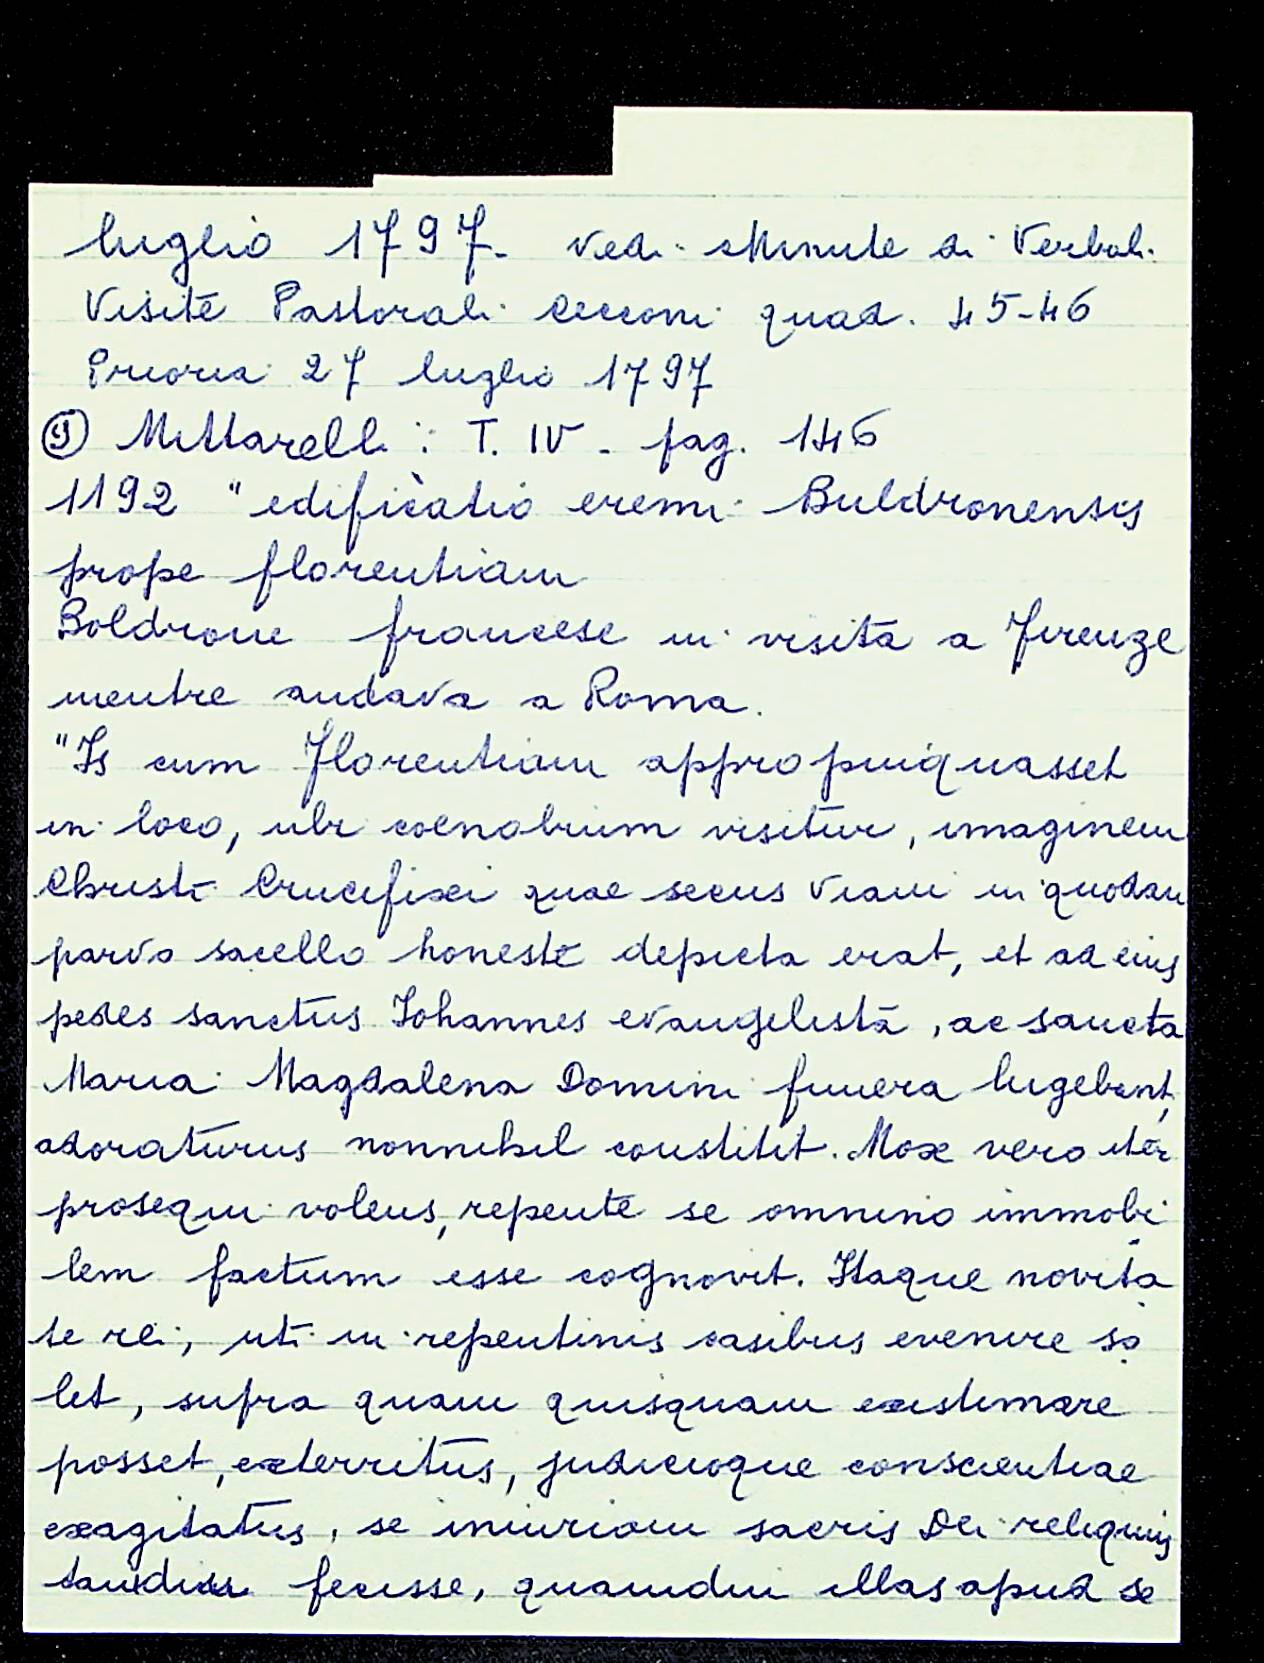 luglio 1797. Vedi Minute di Verbali
Visite Pastorali Cecconi quad. 45-46
Prioria 27 luglio 1797
⑨ Mittarelli: T. IV - pag. 146
1192 "edificatio eremi Buldronensis
prope florentiam
Boldrone francese in visita a Firenze
mentre andava a Roma.
"Is cum Florentiam appropinquasset
in loco, ubi coenobium visitur, imaginem
Christi Crucifixi quae secus viam in quodam
parvo sacello honeste depicta erat, et ad eius
pedes sanctus Iohannes evangelista, ac sancta
Maria Magdalena Domini funera lugebant,
adoraturus nonnihil constitit. Mox vero iter
prosequi volens, repente se omnino immobi
lem factum esse cognovit. Itaque novita
te rei, uti in repentinis casibus evenire so
let, supra quam quisquam existimare
posset, exterritus, judicioque conscientiae
exagitatus, se iniuriam sacris Dei reliquiis
tamdiu fecisse, quamdiu illas apud se